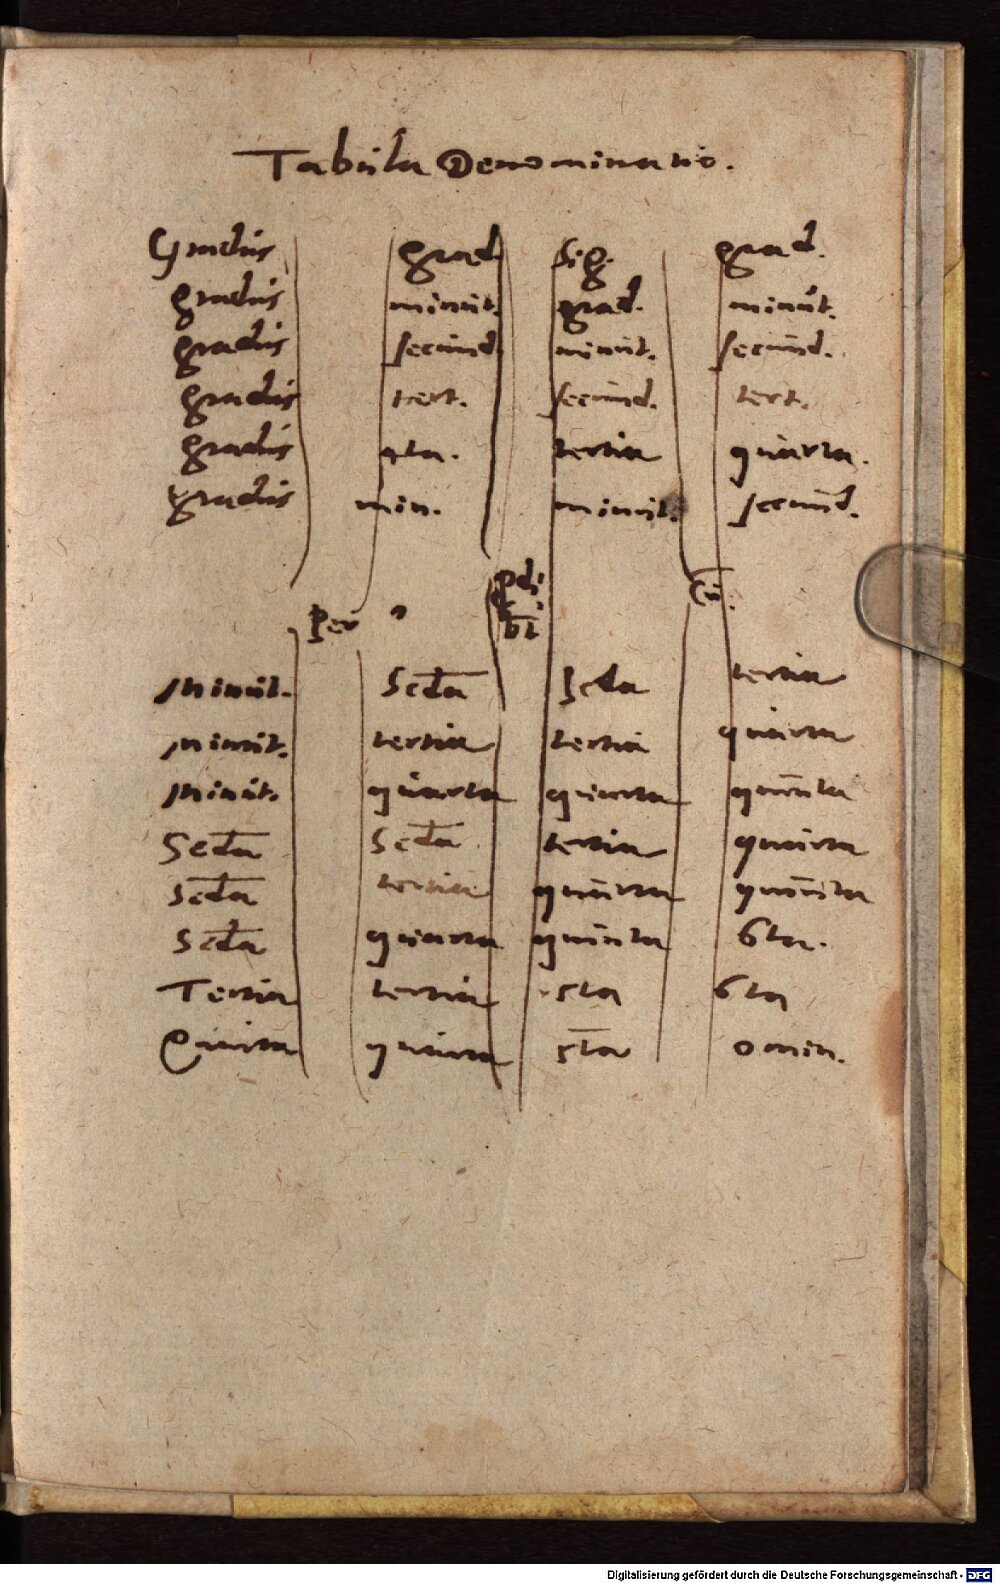 Tabula Denominatio.
Gradus grad. Sig. grad.
gradus minut. grad. minut.
gradus secund. minut. secund.
gradus tert. secund. tert.
gradus qta. tertia quarta.
gradus min. minut. secund.
Per Cu̅.
Minut. Scd̅a Scda tertia
minut. tertia tertia quarta
Minut. quarta quarta quinta
Scd̅a Scd̅a tertia quarta
Scd̅a tertia quarta quinta
Scd̅a quarta quinta 6ta.
Tertia tertia 5ta 6ta
Quarta quarta 5ta omin.
Digitalisierung gefördert durch die Deutsche Forschungsgemeinschaft - DFG